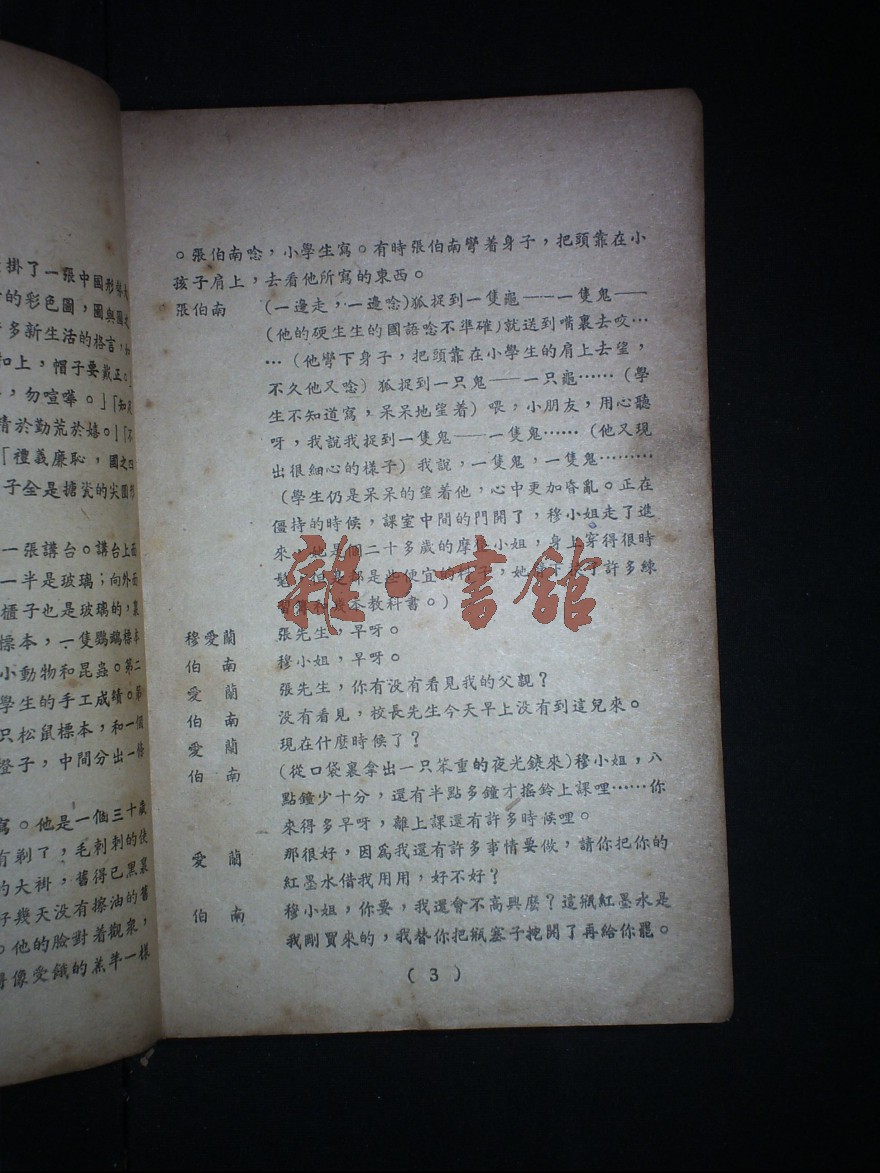 掛了一張中國形
的彩色圖，圖與圖之
多新生活的格言，如
扣上，帽子要戴正。」
，勿喧嘩。」「知
精於勤荒於嬉。」「不
「禮義廉恥，國之四
子全是搪瓷的尖圓形
一張講台。講台上面
一半是玻璃；向外面
櫃子也是玻璃的，裏
標本，一隻鸚鵡標本
小動物和昆蟲。第二
學生的手工成績。第
只松鼠標本，和一個
橙子，中間分出一條
寫。他是一個三十歲
有剃了，毛刺刺的使
的大褂，舊得已黑裏
好幾天没有擦油的舊
。他的臉對着觀衆，
得像受餓的羔羊一樣
。張伯南唸，小學生寫。有時張伯南彎着身子，把頭靠在小
孩子肩上，去看他所寫的東西。
張伯南 (一邊走，一邊唸)狐捉到一隻龜——一隻鬼——
(他的硬生生的國語唸不準確)就送到嘴裏去咬…
…(他彎下身子，把頭靠在小學生的肩上去望，
不久他又唸)狐捉到一只鬼——一只龜……(學
生不知道寫，呆呆地望着)喂，小朋友，用心聽
呀，我說我捉到一隻鬼——一隻鬼……(他又現
出很細心的樣子)我說，一隻鬼，一隻鬼………
(學生仍是呆呆的望着他，心中更加昏亂。正在
僵持的時候，課室中間的門開了，穆小姐走了進
來。她是個二十多歲的摩登小姐，身上穿得很時
髦，但是都是些便宜的料子，她 下 了許多練
習簿和幾本教科書。)
穆愛蘭 張先生，早呀。
伯南 穆小姐，早呀。
愛蘭 張先生，你有没有看見我的父親？
伯南 没有看見，校長先生今天早上没有到這兒來。
愛蘭 現在什麼時候了？
伯南 (從口袋裏拿出一只笨重的夜光錶來)穆小姐，八
點鐘少十分，還有半點多鐘才搖鈴上課哩……你
來得多早呀，離上課還有許多時候哩。
愛蘭 那很好，因爲我還有許多事情要做，請你把你的
紅墨水借我用用，好不好？
伯南 穆小姐，你要，我還會不高興麽？這瓶紅墨水是
我剛買來的，我替你把瓶塞子挖開了再給你罷。
(3)
雜·書館